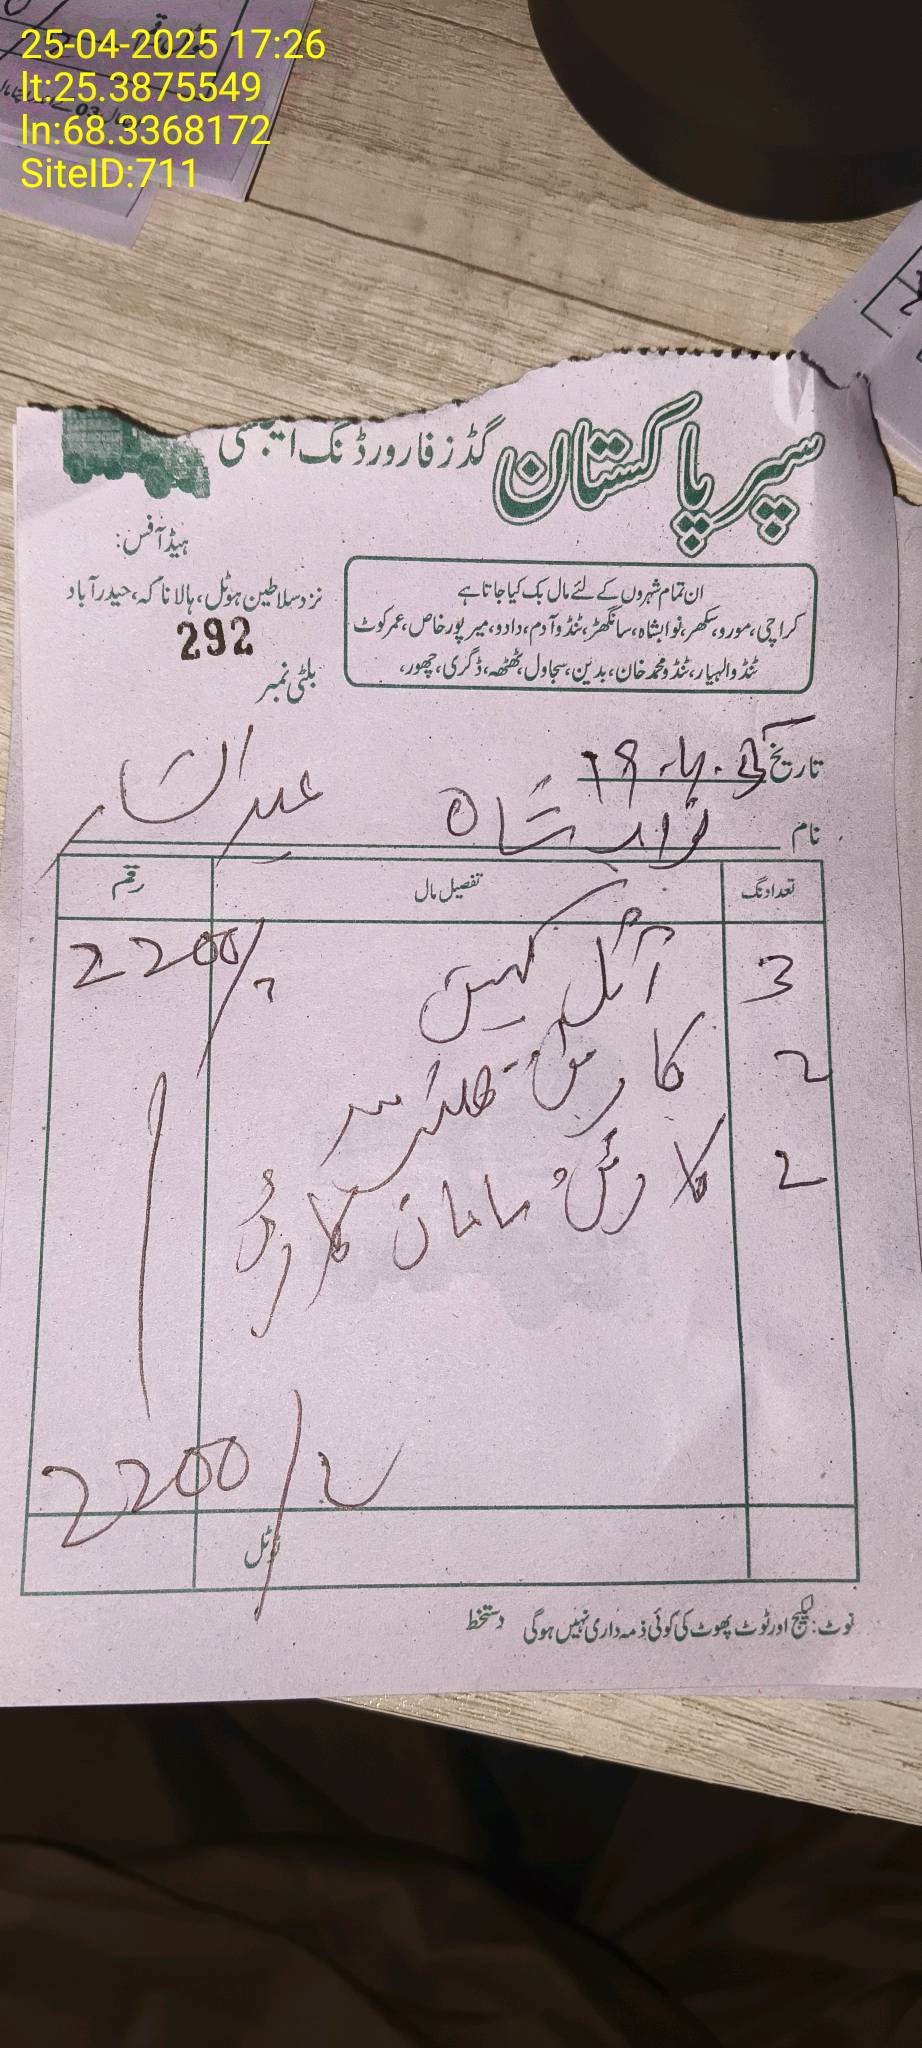 25-04-2025 17:26
lt:25.3875549
ln:68.3368172
SiteID:711
سپر پاکستان گڈز فارورڈنگ ایجنسی
ہیڈ آفس:
نزد سلاطین ہوٹل، ہالا ناکہ، حیدرآباد
ان تمام شہروں کے لئے مال بک کیا جاتا ہے
کراچی، مورو، سکھر، نوابشاہ، سانگھڑ، ٹنڈو آدم، دادو، میرپورخاص، عمرکوٹ
ٹنڈوالہیار، ٹنڈو محمد خان، بدین، سجاول، ٹھٹھہ، ڈگری، چھور،
292
بلٹی نمبر
تاریخ
نام نواب شاہ عبدالستار
تعداد نگ تفصیل مال رقم
3 آئل 2200/
2
2 کارٹن سامان
2200/
ٹوٹل
نوٹ: لیکیج اور ٹوٹ پھوٹ کی کوئی ذمہ داری نہیں ہوگی دستخط